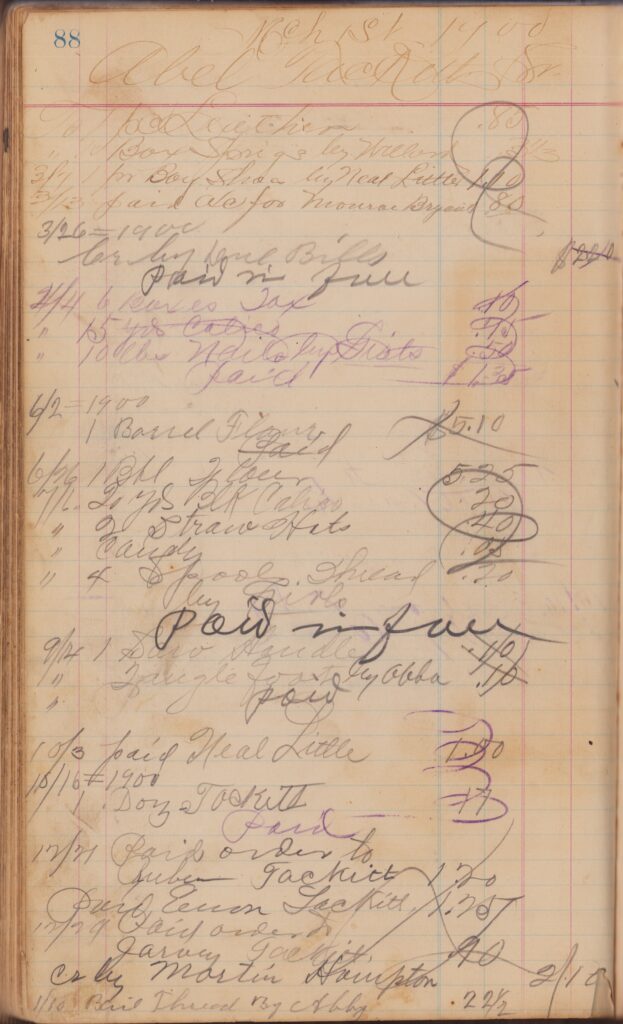 88
Mch 1st 1900
Abel Tackett Sr.
.80
" Box Springs by Willard
3/7 1 pr Boy Shoes by Neal Little 1.10
3/13 paid a/c for Monroe Bryant 80
3/26 = 1900
Cr by Due Bills
Paid in full
4/4 6 Boxes Tax 10
" 15 yds Calico .75
" 10 lbs Nails by Girls 50
paid 1.35
6/2 = 1900
1 Barrel Flour $5.10
Paid
6/26 1 Bbl Flour 5.25
yds Blk Calico 20
" 2 Straw Hats 40
" Candy .05
" 4 Spools Thread .20
by Girls
Paid in full
9/24 1 Saw Handle .10
" by Abba .10
" paid
10/3 paid Neal Little 1.50
10/16 = 1900
1 Doz 17
Paid
12/21 Paid order to
Tackitt 1.20
Paid Tackitt 1.25
12/29 Paid order to
Jarvey Tackitt 90
Cr by Martin Hampton 2/10
1/10 Thread By Abby .22 1/2